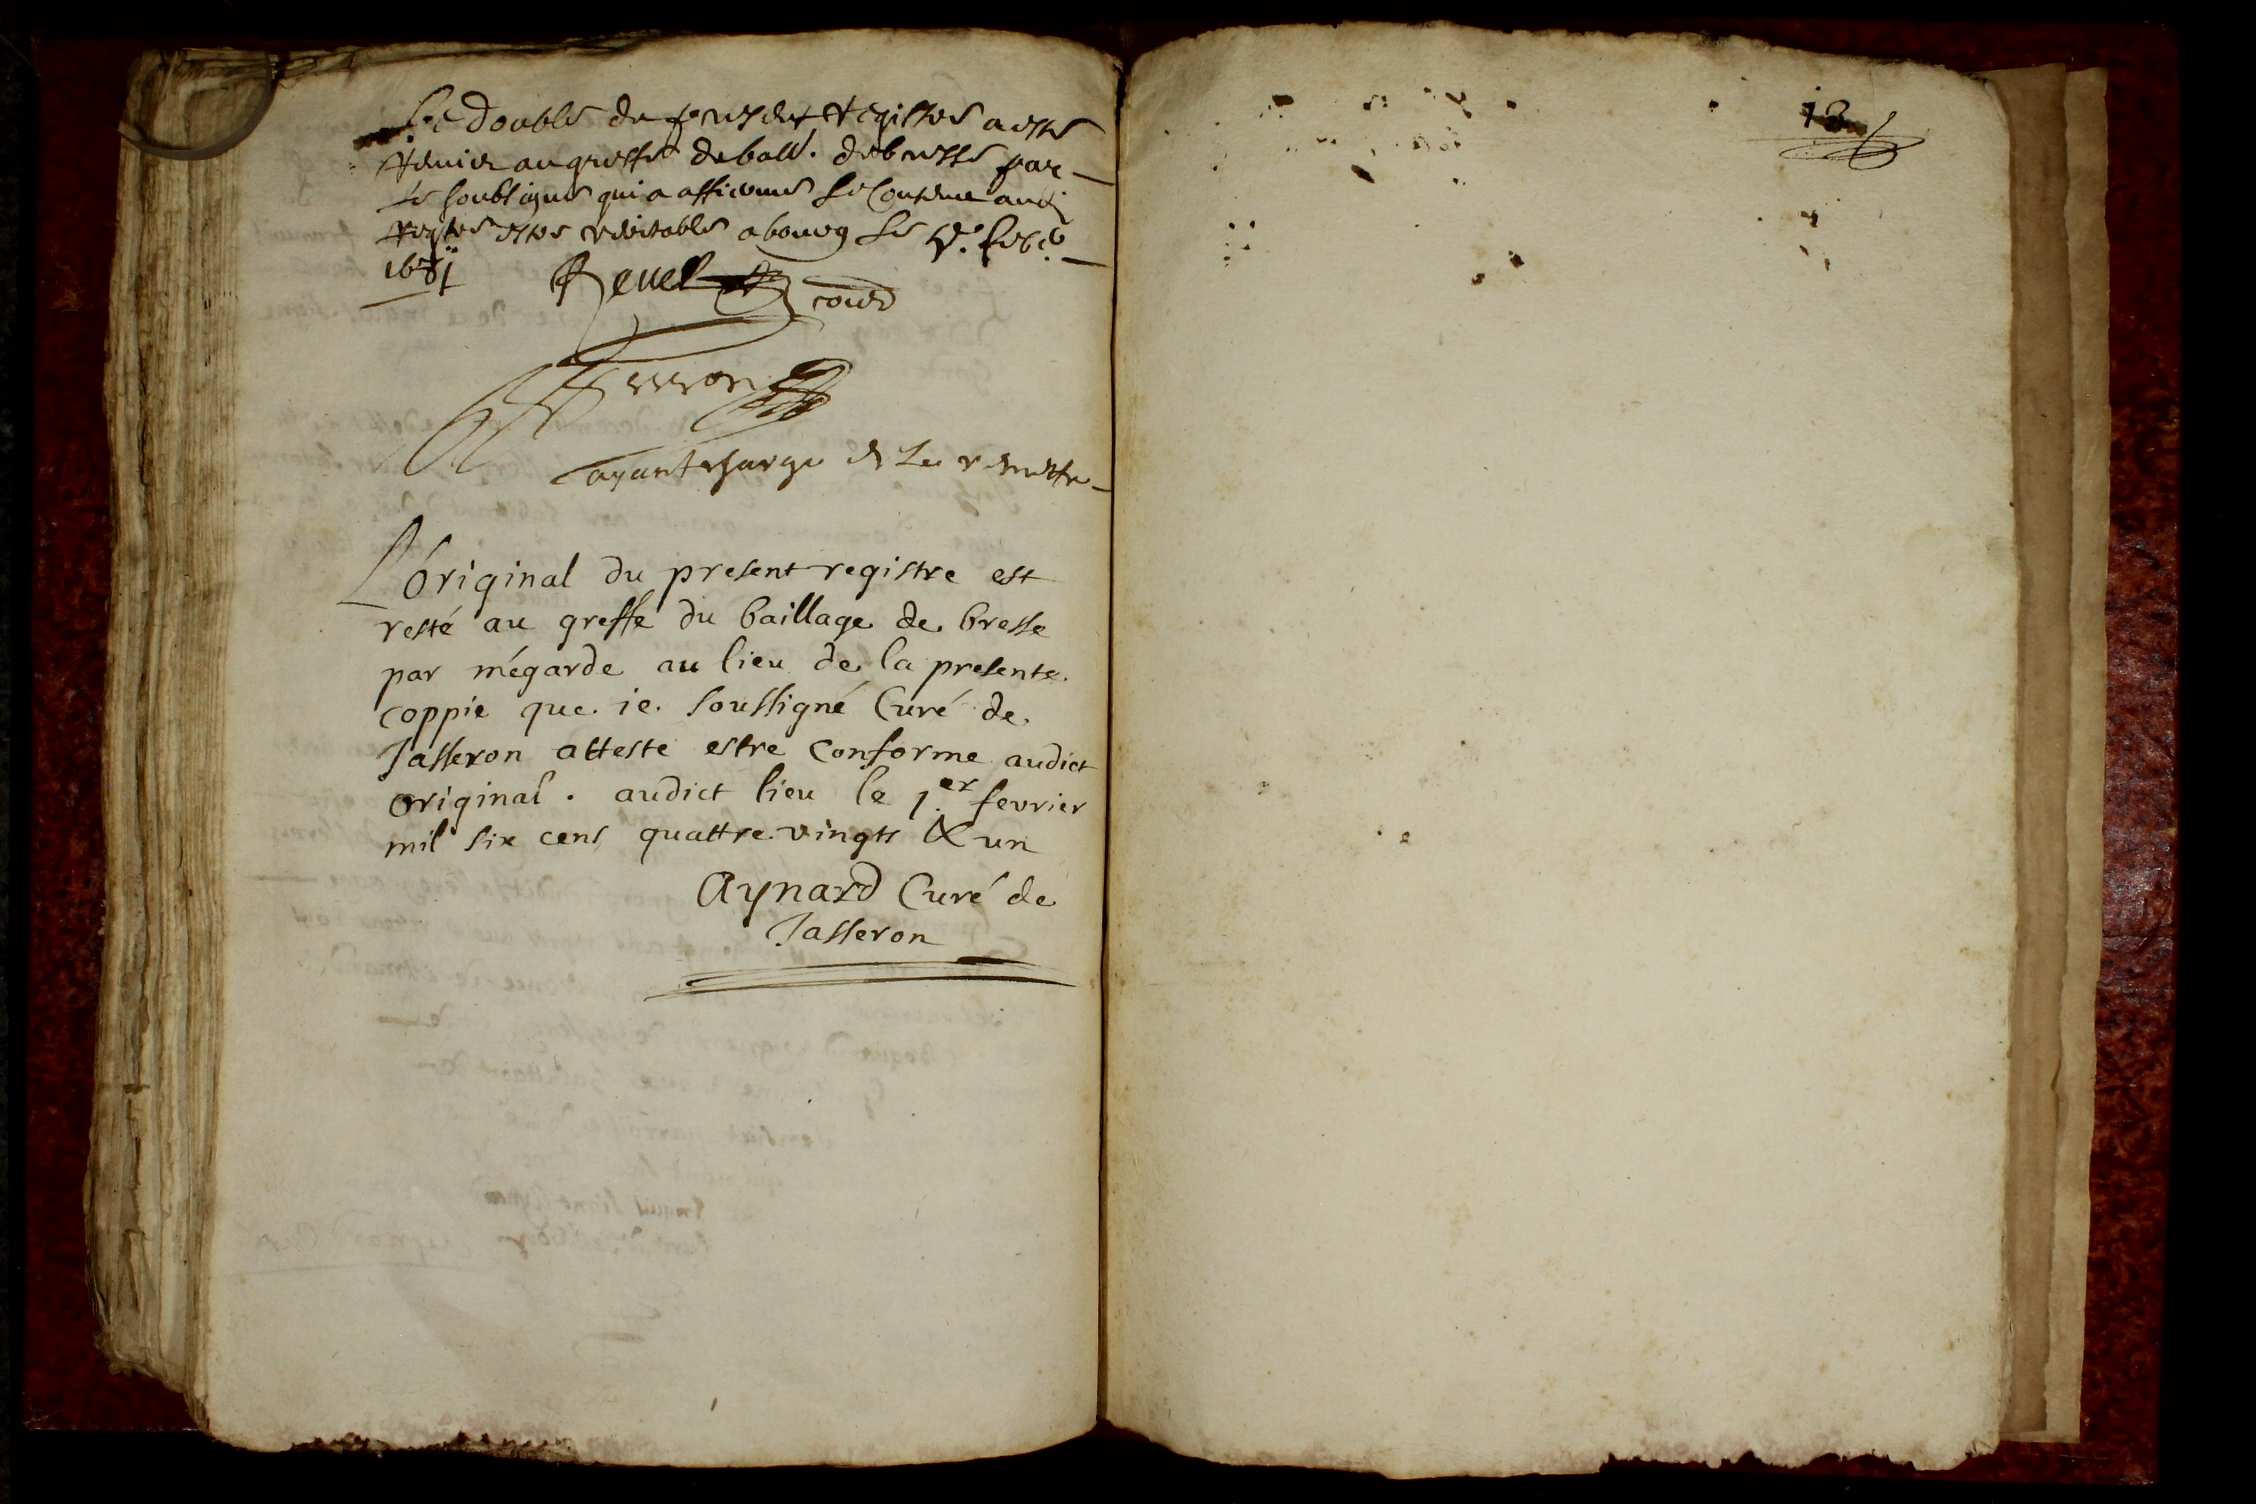 Le double du present registre a esté
remis au greffe de baill. de bresse par
le soubsigné qui a affirmé le contenu aud.
registre estre veritable a bourg le feb.
1681
Revel
ayant charge de le remettre
L'original du present registre est
resté au greffe du baillage de bresse
par mégarde au lieu de la presente
coppie que ie soussigné Curé de
Jasseron atteste estre conforme audict
original. audict lieu le 1.er fevrier
mil six cens quattre vingts & un
Aynard Curé de
Jasseron
13